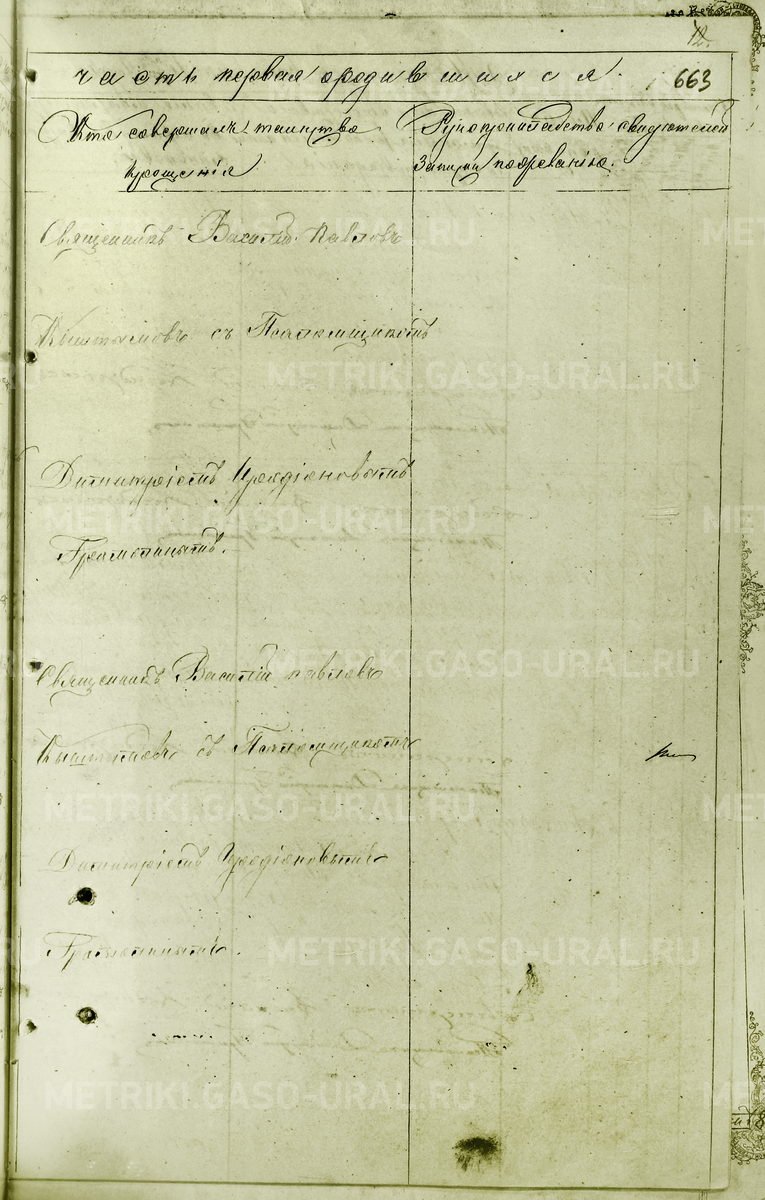 12.
часть первая о родившихся. 663
Кто совершалъ таинство
крещенія.
Рукоприкладство свидѣтелей
записи по желанію.
Священникъ Василій Павловъ
Кыштымовъ съ Псаломщикомъ
Димитріемъ
Грамотинымъ.
Священникъ Василій Павловъ
Кыштымовъ съ Псаломщикомъ
Димитріемъ
Грамотинымъ.
METRIKI.GASO-URAL.RU